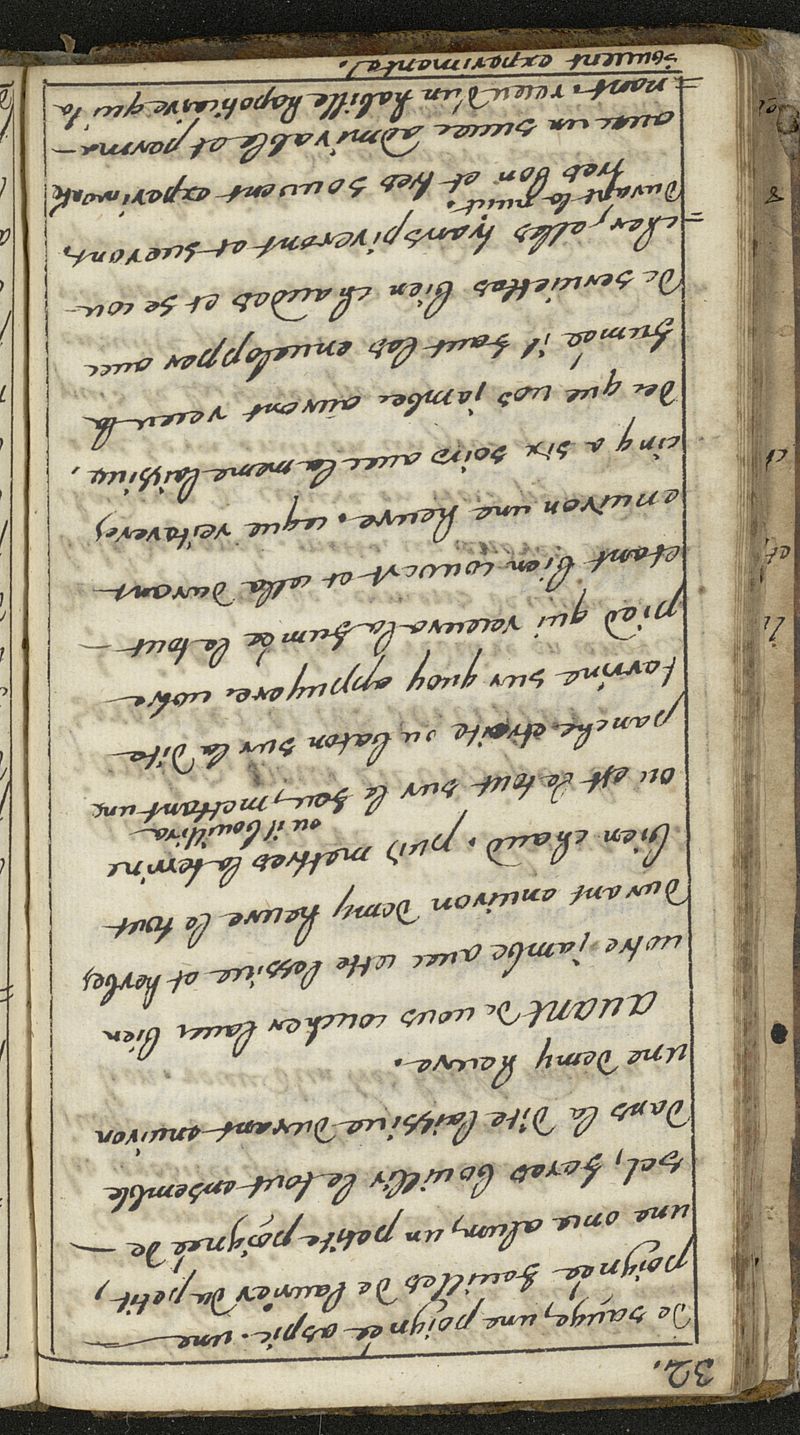 32.
De sauge, une poignée aspic. une
poignée feuilles De laurier Du petit,
une once alun, un petite poignée De
sel, feres bouillir le tout ensemble
Dans la Dite laissiue Durant enuiron
une Demy heure.
auant De uous coucher laues bien
uotre jambe auec cette lessiue et herbes
Durant enuiron Demy heure le tout
bien chaud. puis mettres la terrine
ou il bouillira
ou est le tout sur le feu, mettant une
panche etroite ou baton sur la Dite
terrine sur quoy appuyeres uotre
pied qui receura la fumée le tout
etant bien couuert et cella Durant
enuiron une heure. ceque reitereres
cinq a six soirs auec la meme laissiue,
des que uos jambes auront receu la
fumée il faut les enuelopper auec
De seruiettes bien chaudes et se cou
=cher, elles transpireront et sueront
Durant la nuit.
tres bon et tres souuent experimenté
auec un succes admirable et perma-
=nant. receu D'un habille hapoticaire qui la
souuent experimenté.